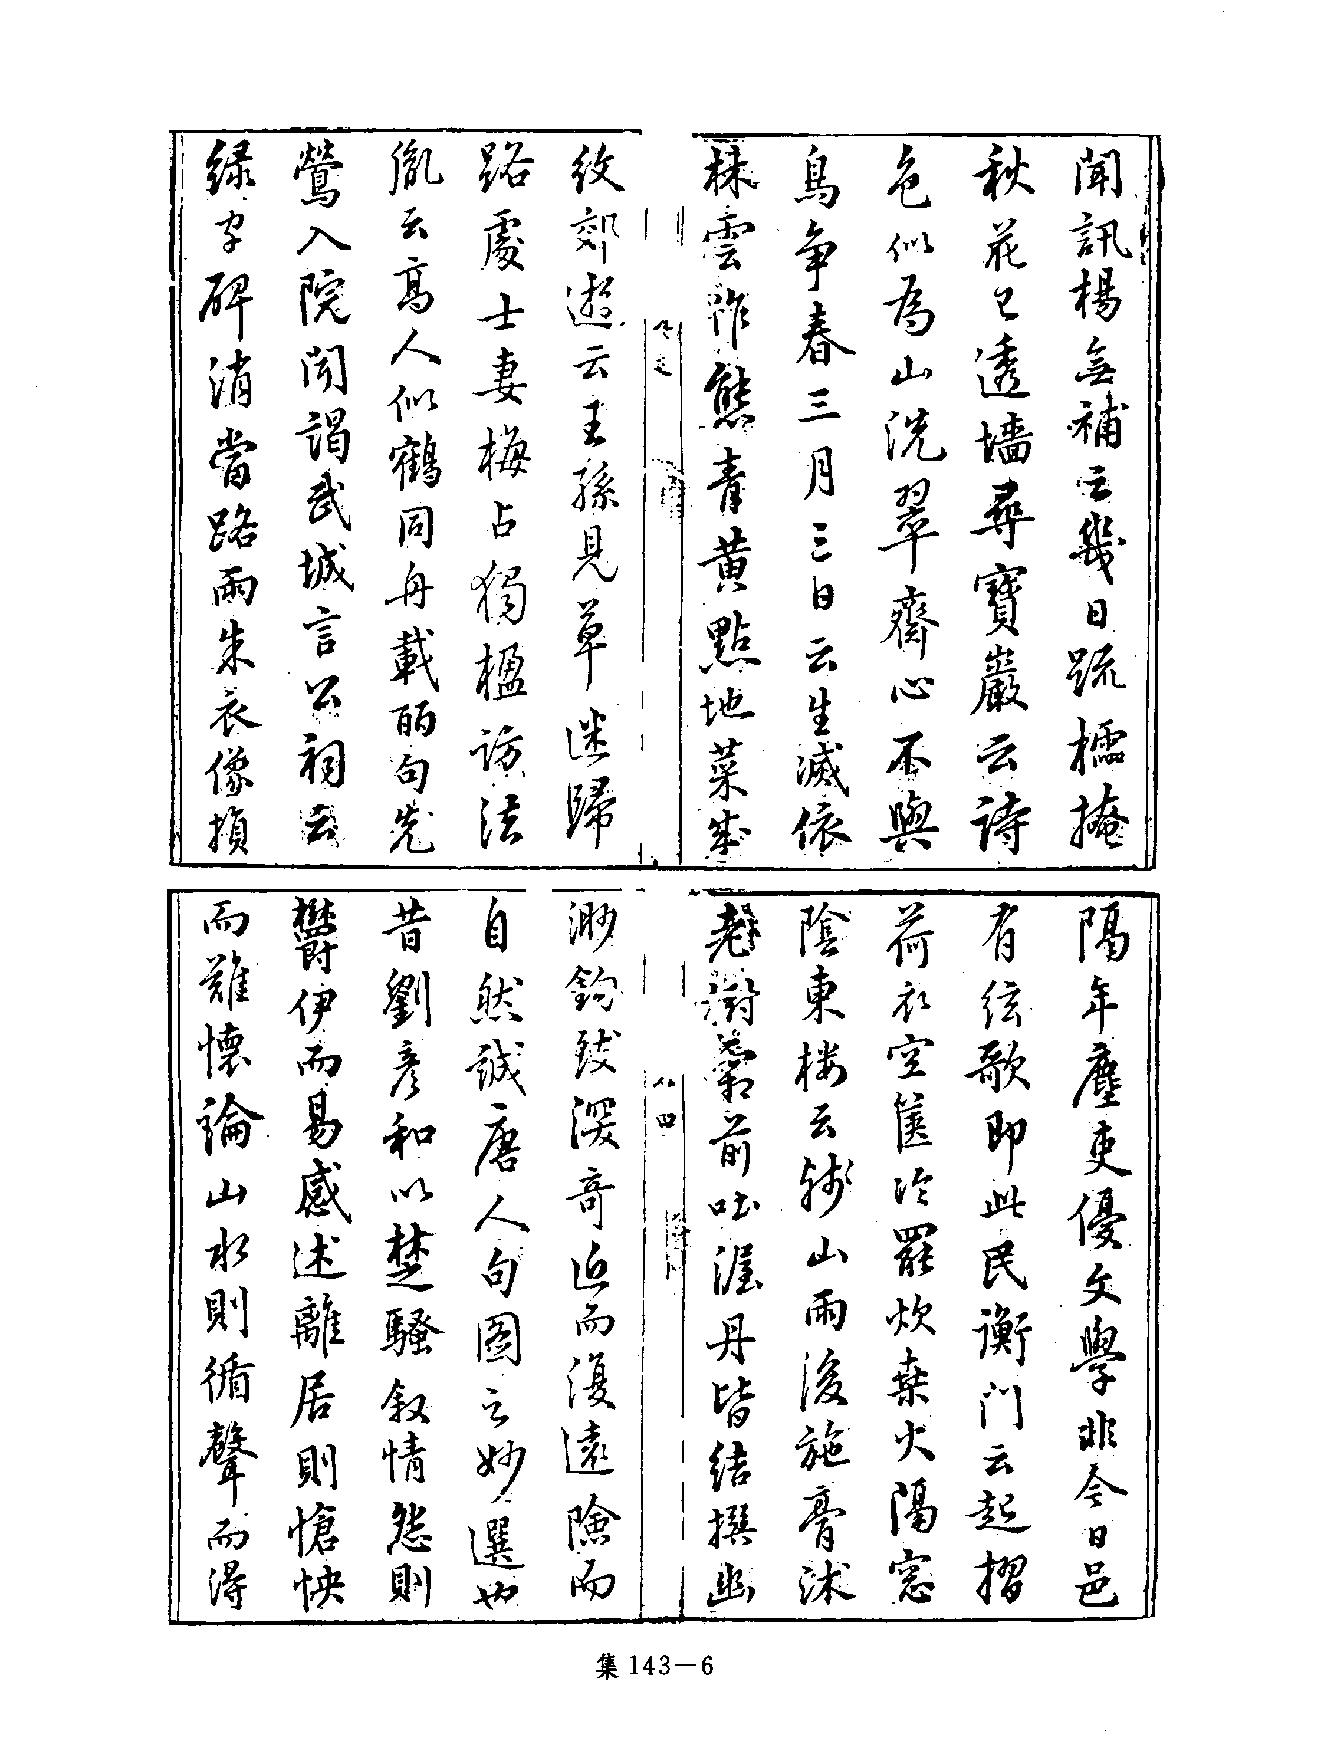 聞訊楊無補云幾日疏櫺掩
秋花已透墻尋寶巖云詩
色似為山洗翠齋心不與
鳥爭春三月三日云生滅依
林雲作態青黃點地菜成
紋郊遊云王孫見草迷歸
路處士妻梅占獨楹訪法
胤云高人似鶴同舟載酉句先
鶯入院聞謁武城言公祠云
綠字碑消當路雨朱衣像損
隔年塵吏優文學非今日邑
有弦歌即此民衡門云起摺
荷衣空篋冷罷炊桒火隔窓
陰東樓云殘山雨後施膏沐
老樹霜前吐渥丹皆結撰幽
渺鉤致深奇近而復遠險而
自然誠唐人句圖之妙選也
昔劉彥和以楚騷叙情怨則
鬱伊而易感述離居則愴怏
而難懷論山水則循聲而得
集 143－6